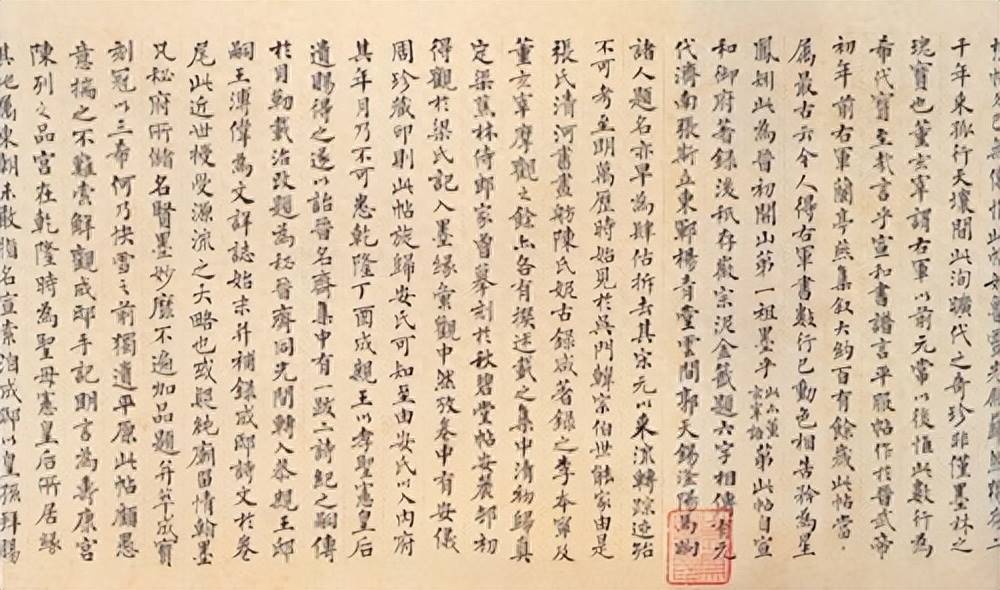 千年來孤行天壤間此洵曠代之奇珍非僅墨林之
瑰寶也董玄宰謂右軍以前元常以後惟此數行為
希代寶至哉言乎宣和書譜言平服帖作於晉武帝
初年前右軍蘭亭燕集叙大約百有餘歲此帖當
屬最古云今人得右軍書數行已動色相告矜為星
鳳矧此為晉初開山第一祖墨乎此亦董玄宰語第此帖自宣
和御府著錄後祇存徽宗泥金籤題六字相傳有元
代濟南張斯立東鄆楊青堂雲間郭天錫滏陽馬昫
諸人題名亦早為肆估拆去其宋元以來流轉蹤迹殆
不可考至明萬歷時始見於吳門韓宗伯世能家由是
張氏清河書畫舫陳氏妮古錄咸著錄之李本寧及
董玄宰摩觀之餘亦各有撰述載之集中清初歸真
定梁蕉林侍郎家曾摹刻於秋碧堂帖安麓邨初
得觀於梁氏記入墨緣彙觀中然攷卷中有安儀
周珍藏印則此帖旋歸安氏可知至由安氏以入內府
其年月乃不可悉乾隆丁酉成親王以孝聖憲皇后
遺賜得之遂以詒晉名齋集中有一跋二詩紀之嗣傳
於貝勒載治改題為秘晉齋同光間轉入恭親王邸
嗣王溥偉為文詳誌始末并補錄成邸詩文於卷
尾此近世授受源流之大略也或疑純廟留情翰墨
凡秘府所儲名賢墨妙靡不遍加品題并萃成寶
刻冠以三希何乃快雪之前獨遺平原此帖顧愚
意揣之不難索解觀成邸手記明言為壽康宮
陳列之品宮在乾隆時為聖母憲皇后所居緣
其地屬東朝未敢指名宣索洎成邸以皇孫拜賜